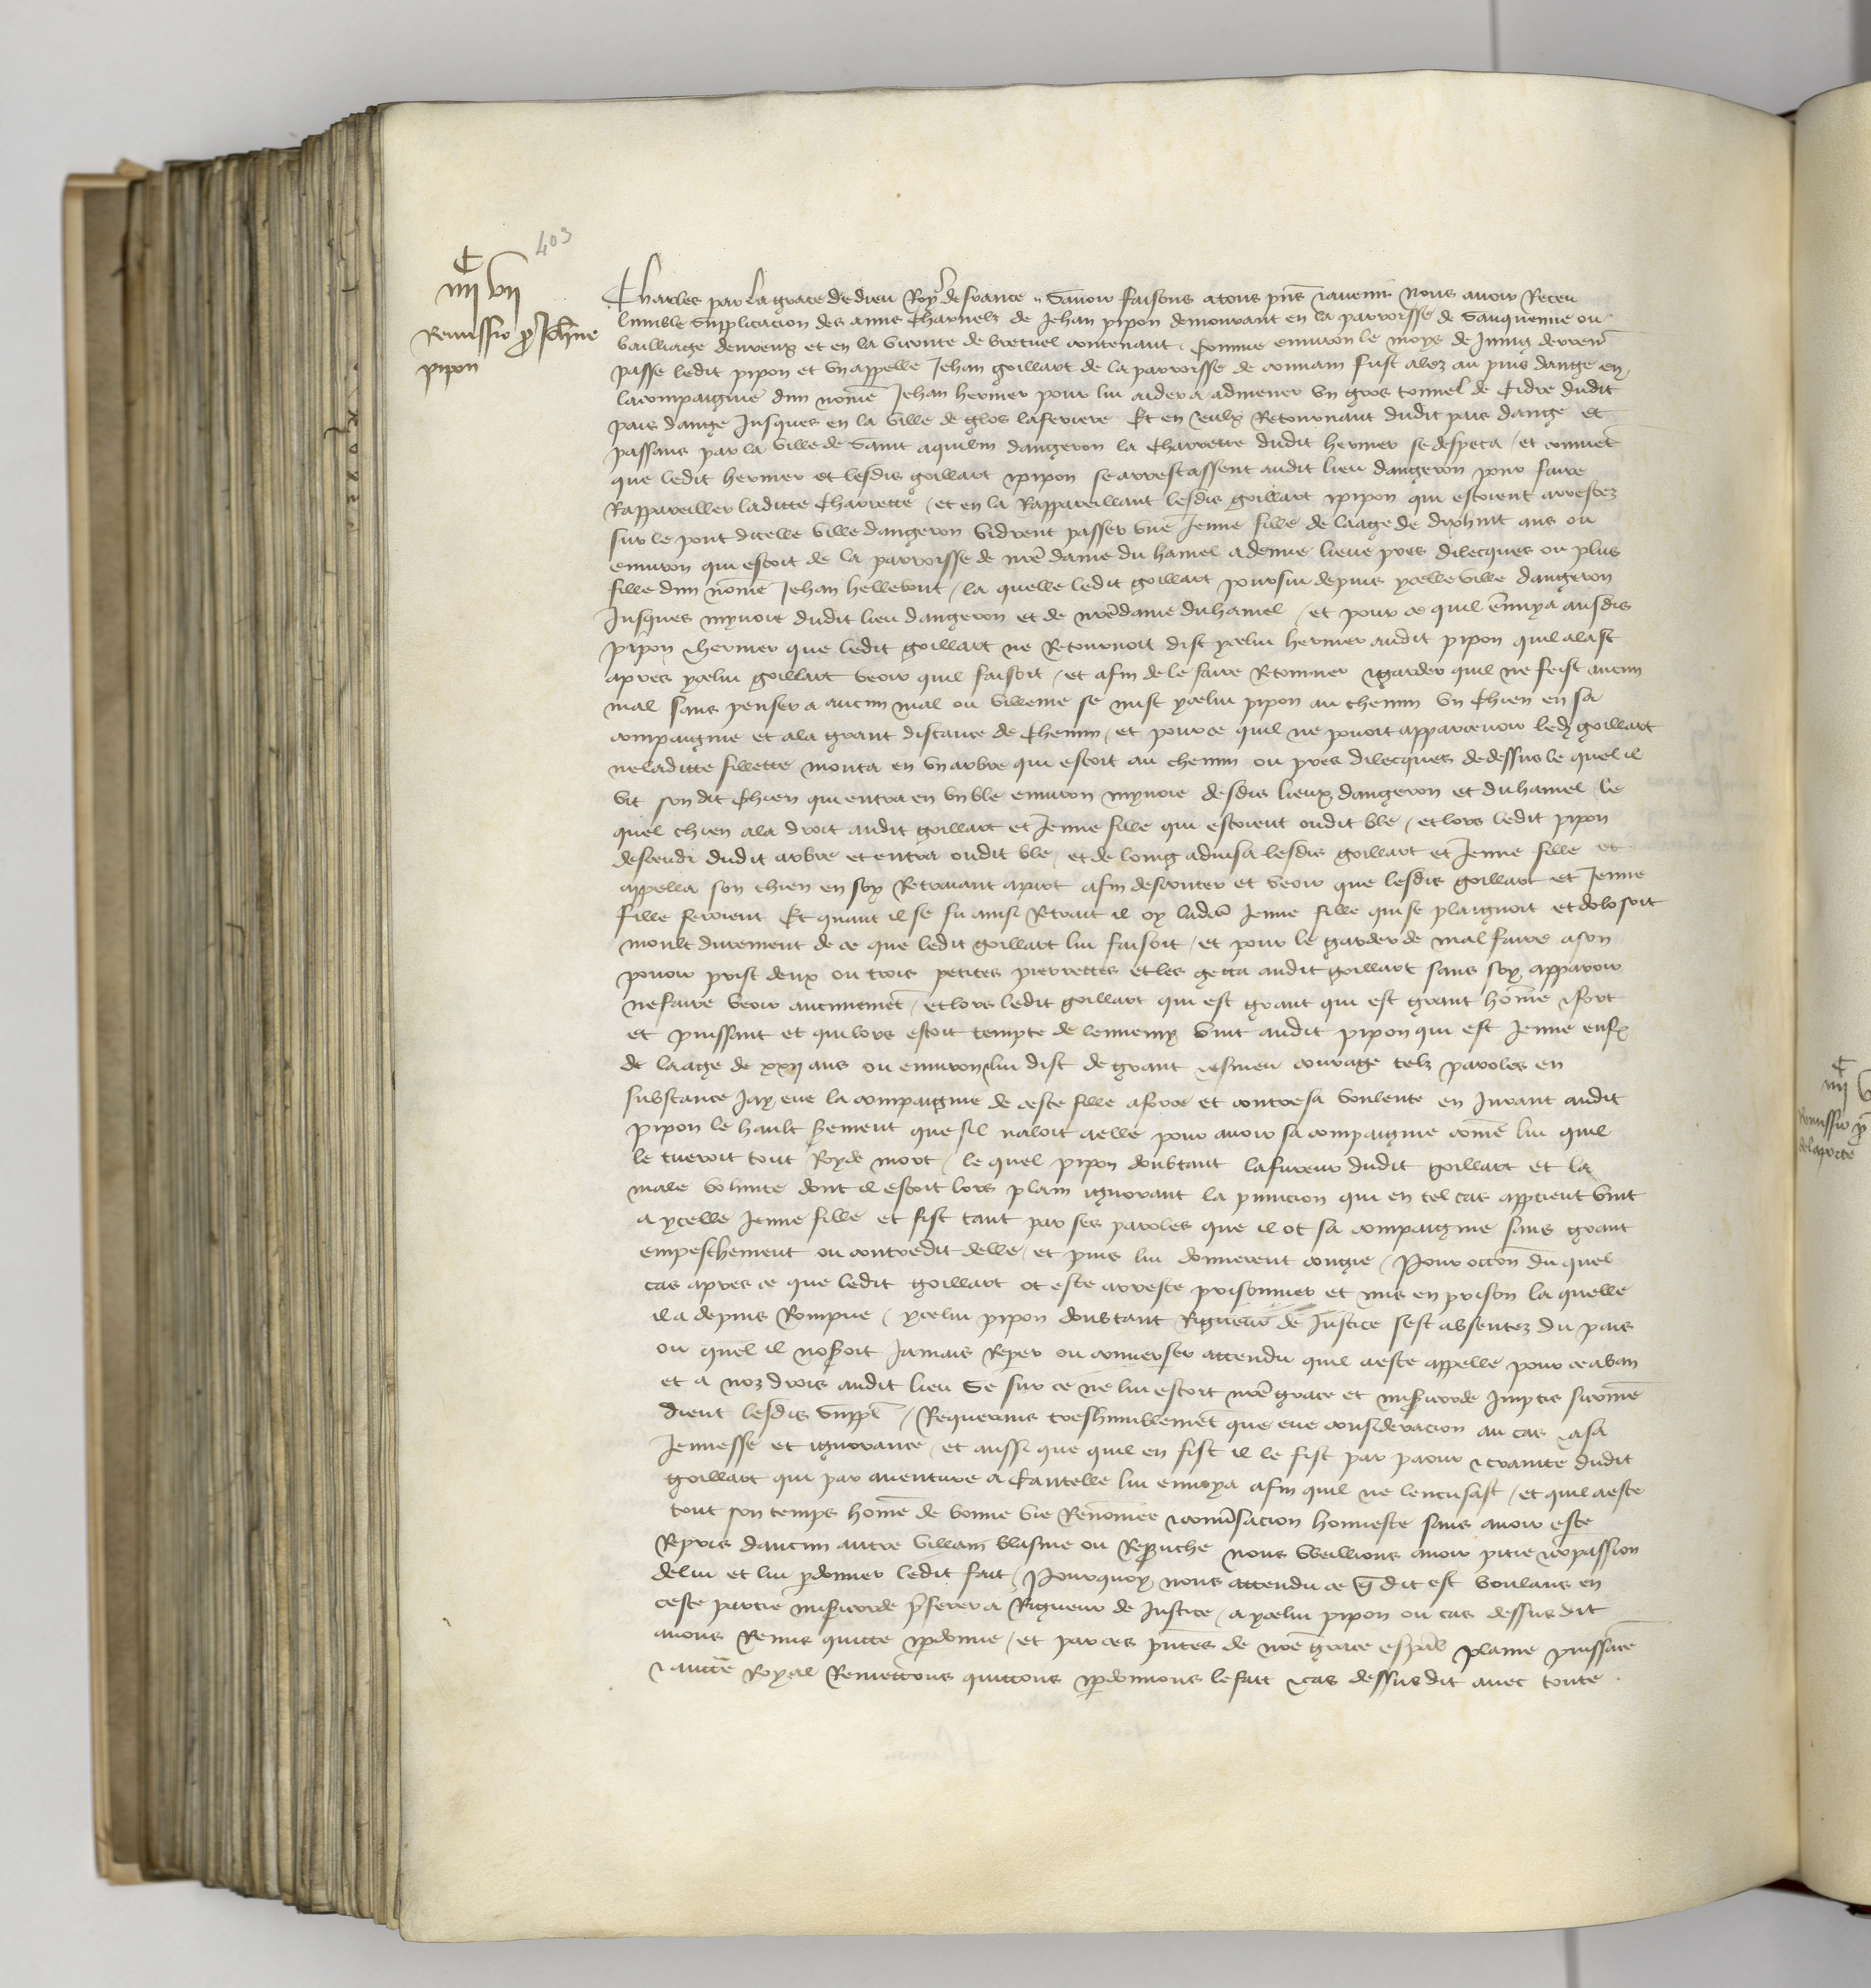 403
C
iiii vii
Remissio pro Johanne
pipon
Charles par la grace de dieu Roy de france Savoir faisons a tous pñs et avenir Nous avoir Receu
lumble Supplicacion des amis charnelz de Jehan pipon demourant en la parroisse de Sauquenne ou
bailliage devreux et en la viconte de bretuel contenant Comme environ le moys de Juing derrenĩ
passe ledit pipon et un appelle Jehan goillart de la parroisse de fust alez au pais dauge en
la compaignie dun nomẽ Jehan hermer pour lui aidera admener un gros tonnel de Cidre dudit
pais dauge Jusques en la ville de glos la feriere Et en eulx Retournant dudit pais dauge et
passans par la ville de Saint aquilin daugeron la charrette dudit hermer se despeca / et convĩt
que ledit hermer et lesdis goillart et pipon se arrestassent audit lieu daugeron pour faire
Rappareiller laditte Charrette / et en la Rappareillant lesdis goillart et pipon qui estoient arrestez
sur le pont dicelle ville daugeron Virent passer une Jeune fille de laage de dixhuit ans ou
environ qui estoit de la parroisse de nrẽ dame du hamel a demie lieue pres dilecques ou plus
fille dun nomẽ Jehan hellebout / la quelle ledit goillart poursui depuis ycelle ville daugeron
Jusques mynoie dudit lieu daugeron et de nrẽ dame du hamel / et pour ce quil ennuya ausdis
pipon et hermer que ledit goillart ne Retournoit dist ycelui hermer audit pipon quil alast
apres ycelui goillart veoir quil faisoit / et afin de le faire Retourner et garder quil ne feist aucun
mal sans penser a aucun mal ou villenie se mist ycelui pipon au chemin un Chien en sa
compaignie et ala grant distance de Chemin / et pour ce quil ne pouoit apparcevoir ledit goillart
ne laditte fillette monta en un arbre qui estoit au chemin ou pres dilecques de dessus le quel il
vit son dit Chien qui entra en un ble environ mynoie desdis lieux daugeron et du hamel le
quel chien ala droit audit goillart et Jeune fille qui estoient oudit ble / et lors ledit pipon
descendi dudit arbre et entra oudit ble / et de loing advisa lesdis goillart et Jeune fille et
appella son chien en soy Retraiant apart afin descouter et veoir que lesdis goillart et Jeune
fille feroient Et quant il se fu ainsi Retrait il oy ladcẽ Jeune fille qui se plaignoit et dolosoit
moult durement de ce que ledit goillart lui faisoit / et pour le garder de mal faire a son
pouoir prist deux ou trois petites pierrettes et les getta audit goillart sans soy apparoir
ne faire veoir aucunemẽt / et lors ledit goillart qui est grant qui est grant homẽ et fort
et puissant et qui lors estoit tempte de lennemy vint audit pipon qui est Jeune enfẽ
de laage de xxij ans ou environ et lui dist de grant et esmeu courage telz paroles en
substance Jay eue la compaignie de ceste fille a force et contre sa voulente en Jurant audit
pipon le hault serement que sil naloit a elle pour avoir sa compaignie comẽ lui quil
le tueroit tout Royde mort / le quel pipon doubtant la fureur dudit goillart et la
male volunte dont il estoit lors plain ignorant la punicion qui en tel cas apptient vint
a ycelle Jeune fille et fist tant par ses paroles que il ot sa compaignie sans grant
empeschement ou contredit delle / et puis lui donnerent congie / Pour occõn du quel
cas apres ce que ledit goillart ot este arreste prisonnier et mis en prison la quelle
il a depuis Rompue / ycelui pipon doubtant Rigueur de Justice sest absentez du pais
ou quel il noseroit Jamais Reper ou converser attendu quil a este appelle pour ce a ban
et a noz drois audit lieu Se sur ce ne lui estoit nrẽ grace et misericorde Impetree si comẽ
dient lesdis suppl / Requerans treshumblemẽt que eue consideracion au cas et a sa
Jeunesse et ignorance / et aussi que quil en fist il le fist par paour et crainte dudit
goillart qui par aventure a cautelle lui envoya afin quil ne lencusast / et quil a este
tout son temps homẽ de bonne vie Renõmee et conversacion honneste sans avoir este
Repris daucun autre villain blasme ou Reprouche nous vueillions avoir pitie et cõpassion
de lui et lui pardonner ledit fait / Pourquoy nous attendu ce q̃ dit est voulans en
ceste partie misericorde p̃ferer a Rigueur de Justice / a ycelui pipon ou cas dessusdit
avons Remis quitte et pardonne / et par ces p̃ntes de nrẽ grace esp̃al plaine puissãce
et auctẽ Royal Remettons quittons et pardonnons le fait et cas dessusdit avec toute
C
iiii
Remissio pro
de la porte